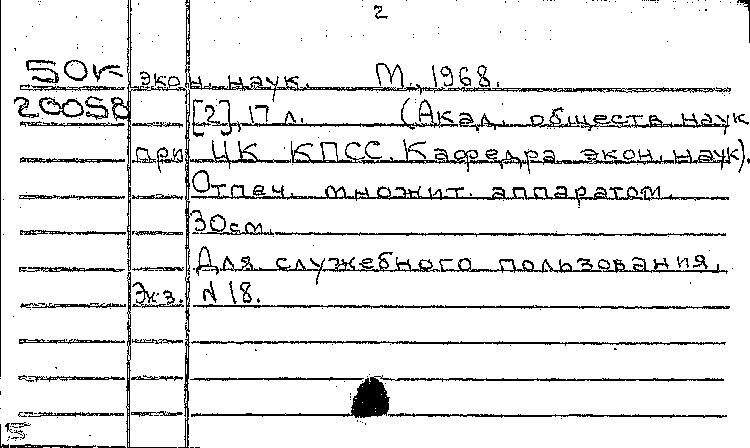 2
50К экон. наук. М., 1968.
20058 [2], 17 л. (Акад. обществ. наук
при ЦК КПСС. Кафедра экон. наук).
Отпеч. множит. аппаратом.
30см.
Для служебного пользования.
Экз. N 18.
5